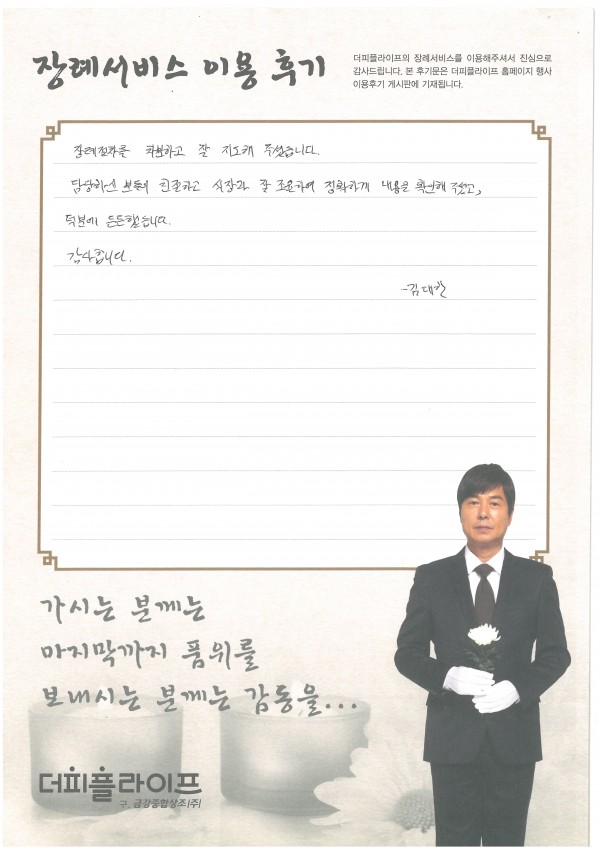 장례서비스 이용 후기
더피플라이프의 장례서비스를 이용해주셔서 진심으로
감사드립니다. 본 후기문은 더피플라이프 홈페이지 행사
이용후기 게시판에 기재됩니다.
장례절차를 차분하고 잘 지도해 주셨습니다.
담당하신 분들이 친절하고 시장과 잘 조율하여 정확하게 내용을 확인해 주셨고,
덕분에 든든했습니다.
감사합니다.
가시는 분께는
마지막까지 품위를
보내시는 분께는 감동을...
더피플라이프
구. 금강종합상조(주)